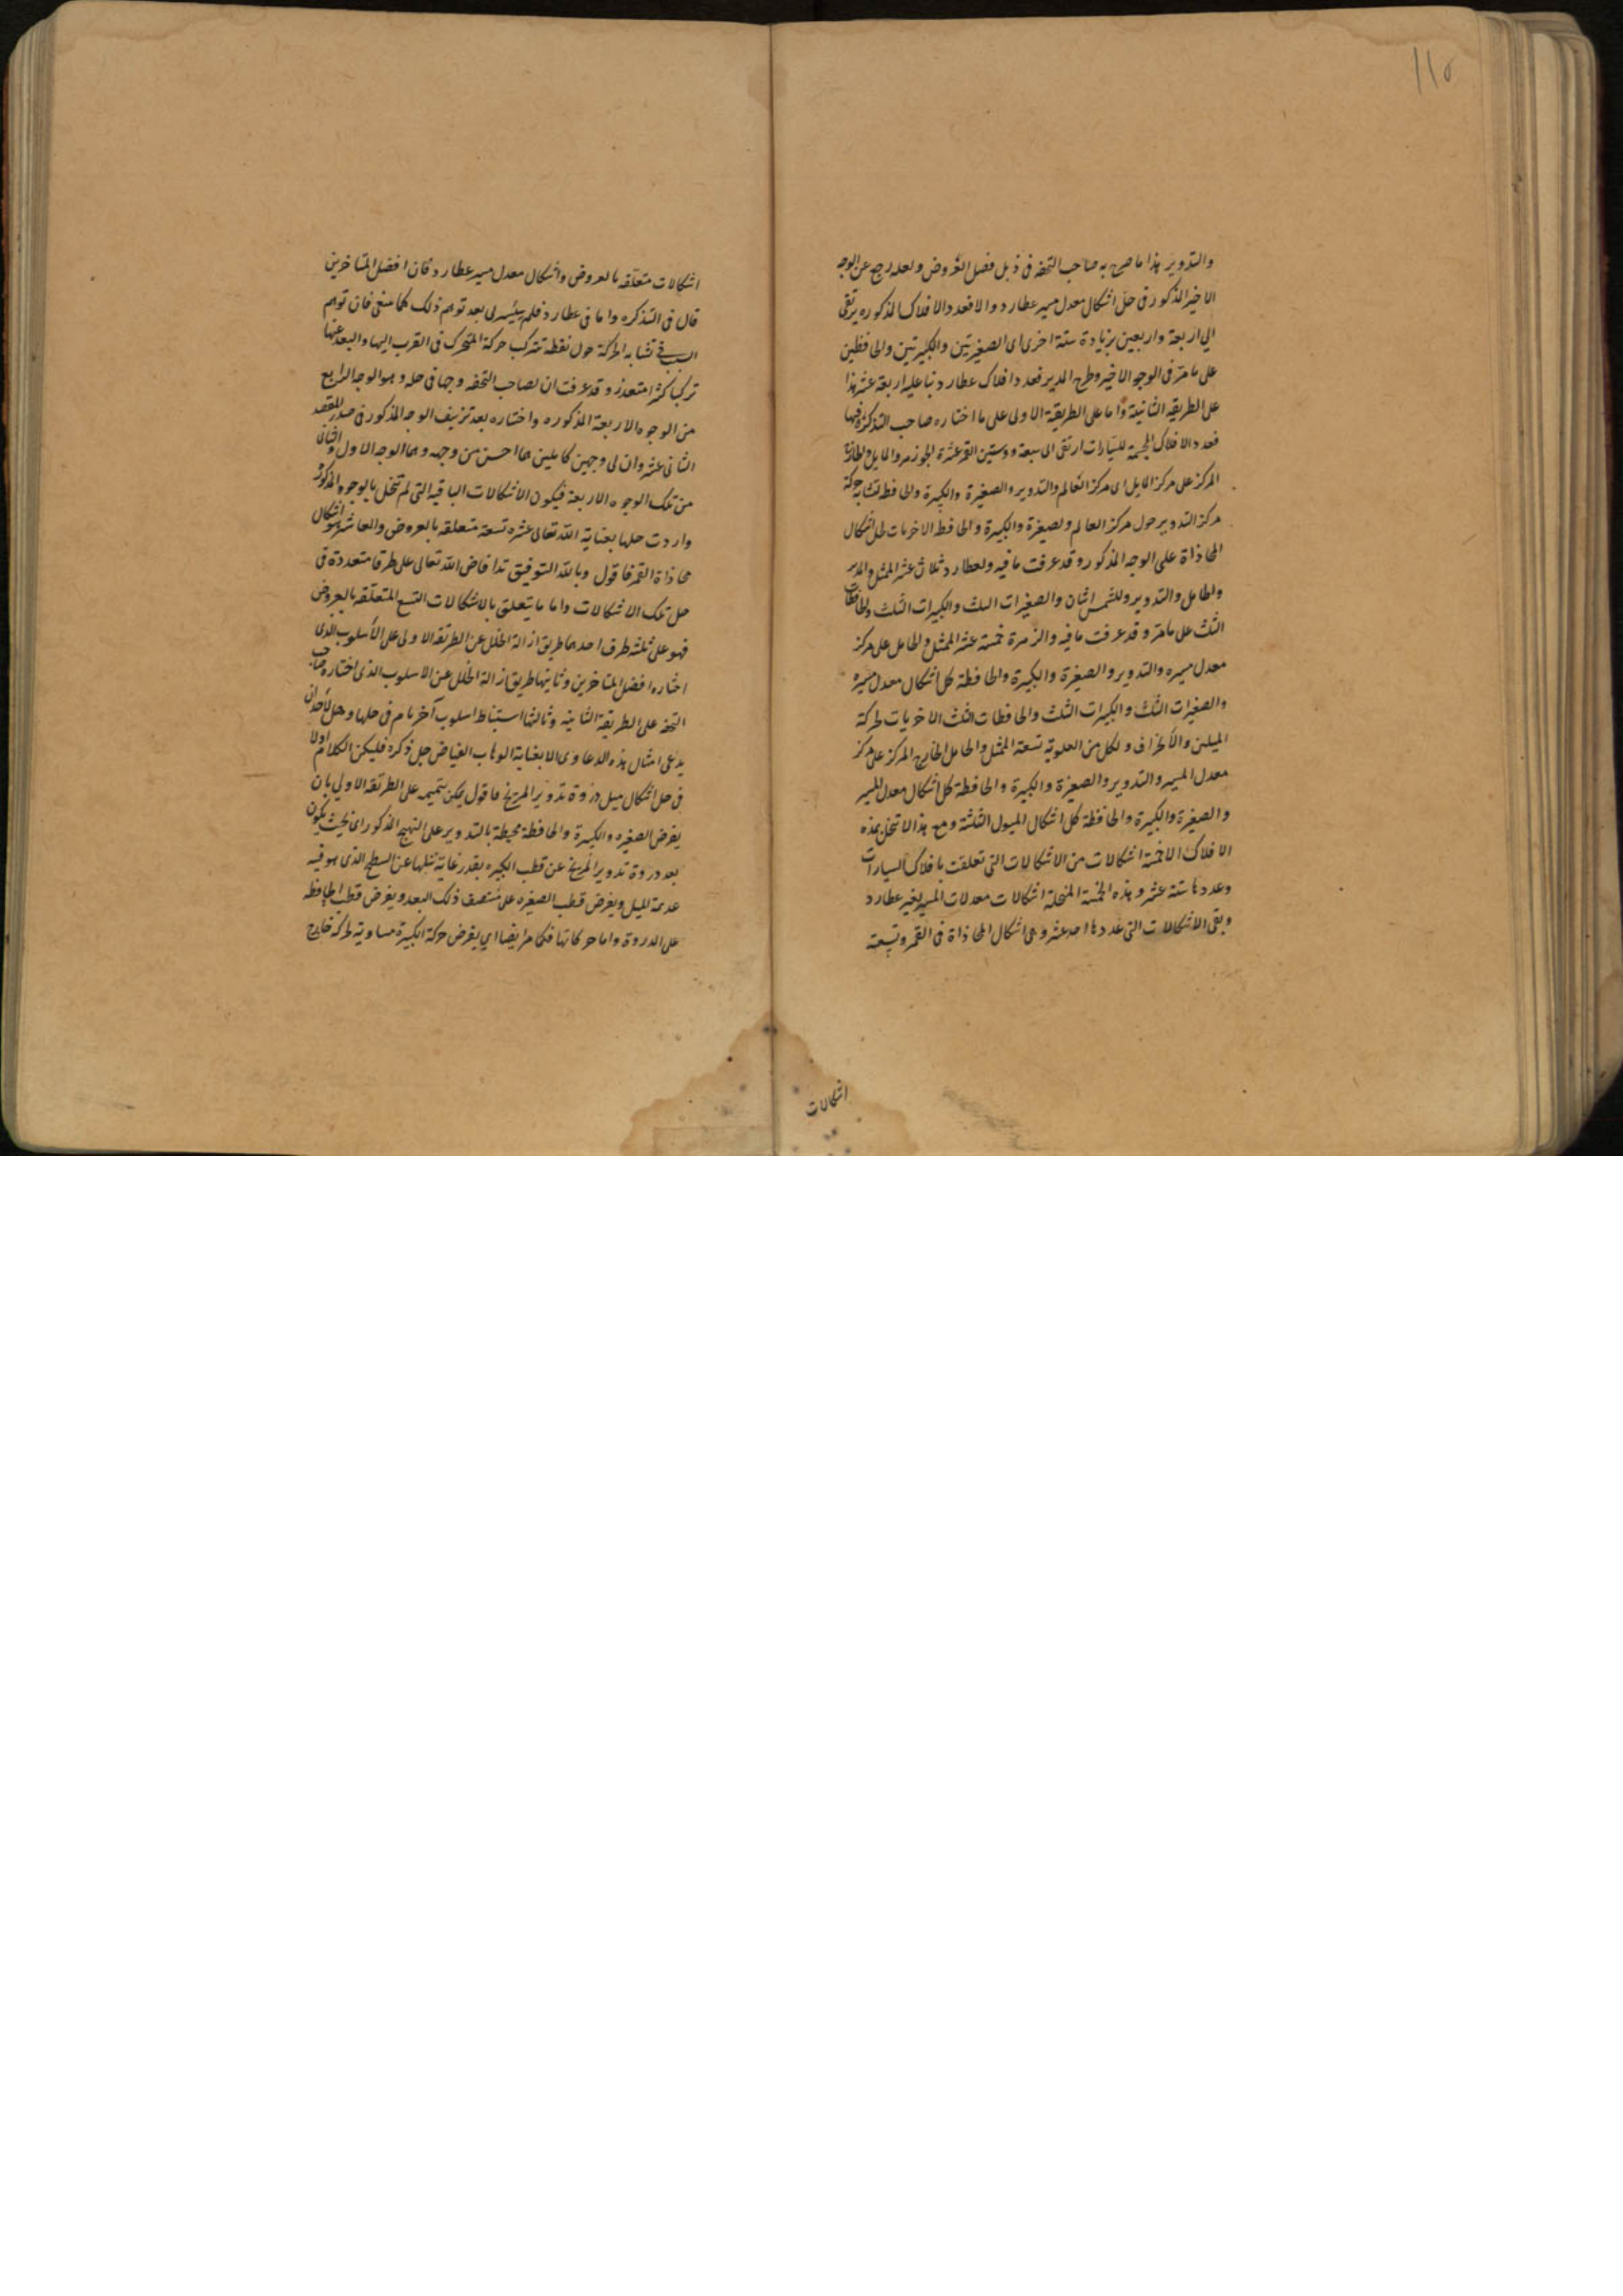 ١١٥
والتدوير هذا ما صرح به صاحب التحفه فى ذيل فصل العروض ولعله رجع عن الوجه
الاخير المذكور فى حل اشكال معدل مسير عطارد والا فعدد الافلاك المذكوره يرتقى
الى اربعة واربعين بزيادة ستة اخرى اى الصغيرتين والكبيرتين والحافظتين
على ما مر فى الوجه الاخير وطرح المدير فعدد افلاك عطارد بناء عليه اربعة عشر هذا
على الطريقه الثانية واما على الطريقة الاولى على ما اختاره صاحب التذكرة وفيها
فعدد الافلاك المجسمة للسيارات ارتقى الى سبعة وستين للقمر عشرة الجوزهر والمايل والخارج
المركز على مركز المايل اى مركز العالم والتدوير والصغيرة والكبيرة والحافظة لتشابه حركة
مركز التدوير حول مركز العالم والصغيرة والكبيرة والحافظة الاخريات لحل اشكال
المحاذاة على الوجه المذكور وقد عرفت ما فيه ولعطارد ثلاث عشر الممثل والمدير
والحامل والتدوير وللشمس اثنان والصغيرات الثلث والكبيرات الثلث والحافظات
الثلث على ما مر وقد عرفت ما فيه والزهرة خمسة عشر الممثل والحامل على مركز
معدل مسيره والتدوير والصغيرة والكبيرة والحافظة لحل اشكال معدل مسيره
والصغيرات الثلث والكبيرات الثلث والحافظات الثلث الاخريات لحركة
الميلين والانحراف ولكل من العلوية تسعة الممثل والحامل الخارج المركز على مركز
معدل المسير والتدوير والصغيرة والكبيرة والحافظة لحل اشكال معدل المسير
والصغيرة والكبيرة والحافظة لحل اشكال الميول الثلثة ومع هذا لا تنحل بهذه
الافلاك الا خمسة اشكالات من الاشكالات التى تعلقت بافلاك السيارات
وعددها ستة عشر وهذه الخمسة المنحلة اشكالات معدلات المسير لغير عطارد
وبقى الاشكالات التى عددها احد عشر وهى اشكال المحاذاة فى القمر وتسعة
اشكالات
اشكالات متعلقه بالعروض واشكال معدل مسير عطارد فان افضل المتاخرين
قال فى التذكره واما فى عطارد فلم يتيسر لى بعد توهم ذلك كما ينبغى فان توهم
السبب فى تشابه الحركة حول نقطه تتركب حركة المتحرك فى القرب اليها والبعد عنها
تركبا كثرا متعذر وقد عرفت ان لصاحب التحفه وجها فى حله وهو الوجه الرابع
من الوجوه الاربعة المذكوره واختاره بعد تزييف الوجه المذكور فى صدر المقصد
الثانى عشر وان لى وجهين كاملين هما احسن من وجهه وهما الوجه الاول والثانى
من تلك الوجوه الاربعة فيكون الاشكالات الباقيه التى لم تنحل بالوجوه المذكورة
واردت حلها بعناية الله تعالى عشره تسعة متعلقه بالعروض والعاشر هو اشكال
محاذاة القمر فاقول وبالله التوفيق قد افاض الله تعالى على طرقا متعددة فى
حل تلك الاشكالات واما ما يتعلق بالاشكالات التسع المتعلقه بالعروض
فهو على ثلثه طرف احدها طريق ازالة الخلل عن الطريقه الاولى على الاسلوب الذى
اختاره افضل المتاخرين وثانيها طريق ازالة الخلل عن الاسلوب الذى اختاره صاحب
التحفه على الطريقة الثانيه وثالثها استنباط اسلوب آخر تام فى حلها وحل لاحد ان
يدعى امثال هذه الدعاوى الا بعناية الوهاب الفياض جل ذكره فليكن الكلام اولا
فى حل اشكال ميل ذروة تدوير المريخ فاقول يمكن تتميمه على الطريقه الاولى بان
يفرض الصغيره والكبيرة والحافظة محيطة بالتدوير على النهج المذكور اى بحيث يكون
بعد ذروة تدوير المريخ عن قطب الكبيره بقدر غاية ميلها عن السطح الذى هو فيه
عديمة الميل ويفرض قطب الصغيره على منتصف ذلك البعد ويفرض قطب الحافظه
على الذروة واما حركاتها فكما مر ايضا اى يفرض حركة الكبيرة مساوية لحركة خارج